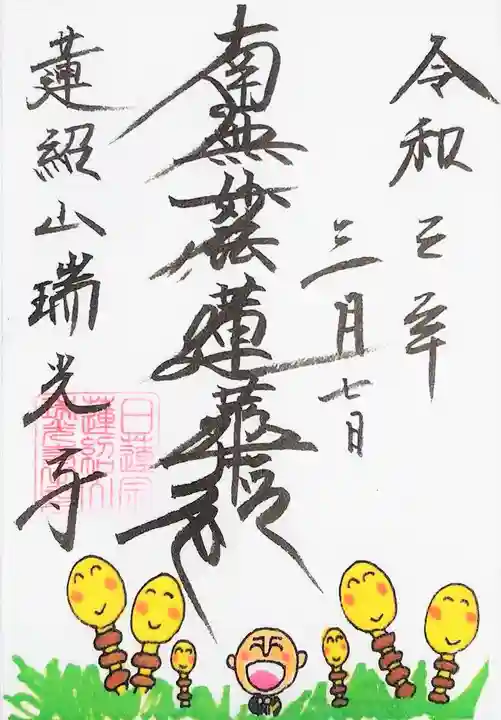 令和三年
三月七日
南無妙法蓮華経
蓮紹山瑞光寺
日蓮宗
蓮紹山
瑞光寺